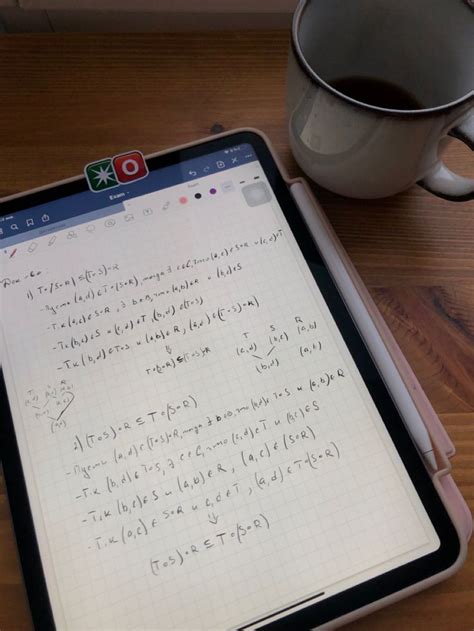 Exam
Док-во
1) T∘(S∘R) ⊆ (T∘S)∘R
- Пусть (a,d) ∈ T∘(S∘R), тогда ∃ c∈C, что (a,c) ∈ S∘R и (c,d) ∈ T
- Т.к (a,c) ∈ S∘R, ∃ b∈B, (a,b) ∈ R и (b,c) ∈ S
- Т.к (b,c) ∈ S и (c,d) ∈ T, (b,d) ∈ (T∘S)
- Т.к (b,d) ∈ T∘S и (a,b) ∈ R, (a,d) ∈ (T∘S)∘R
⇓
T∘(S∘R) ⊆ (T∘S)∘R
T S R
(c,d) (b,c) (a,b)
(b,d) (a,b)
T S R
2) (T∘S)∘R ⊆ T∘(S∘R)
- Пусть (a,d) ∈ (T∘S)∘R, тогда ∃ b∈B, что (b,d) ∈ T∘S и (a,b) ∈ R
- Т.к (b,d) ∈ T∘S, ∃ c∈C, что (c,d) ∈ T и (b,c) ∈ S
- Т.к (b,c) ∈ S и (a,b) ∈ R, (a,c) ∈ (S∘R)
- Т.к (a,c) ∈ S∘R и (c,d) ∈ T, (a,d) ∈ T∘(S∘R)
⇓
(T∘S)∘R ⊆ T∘(S∘R)